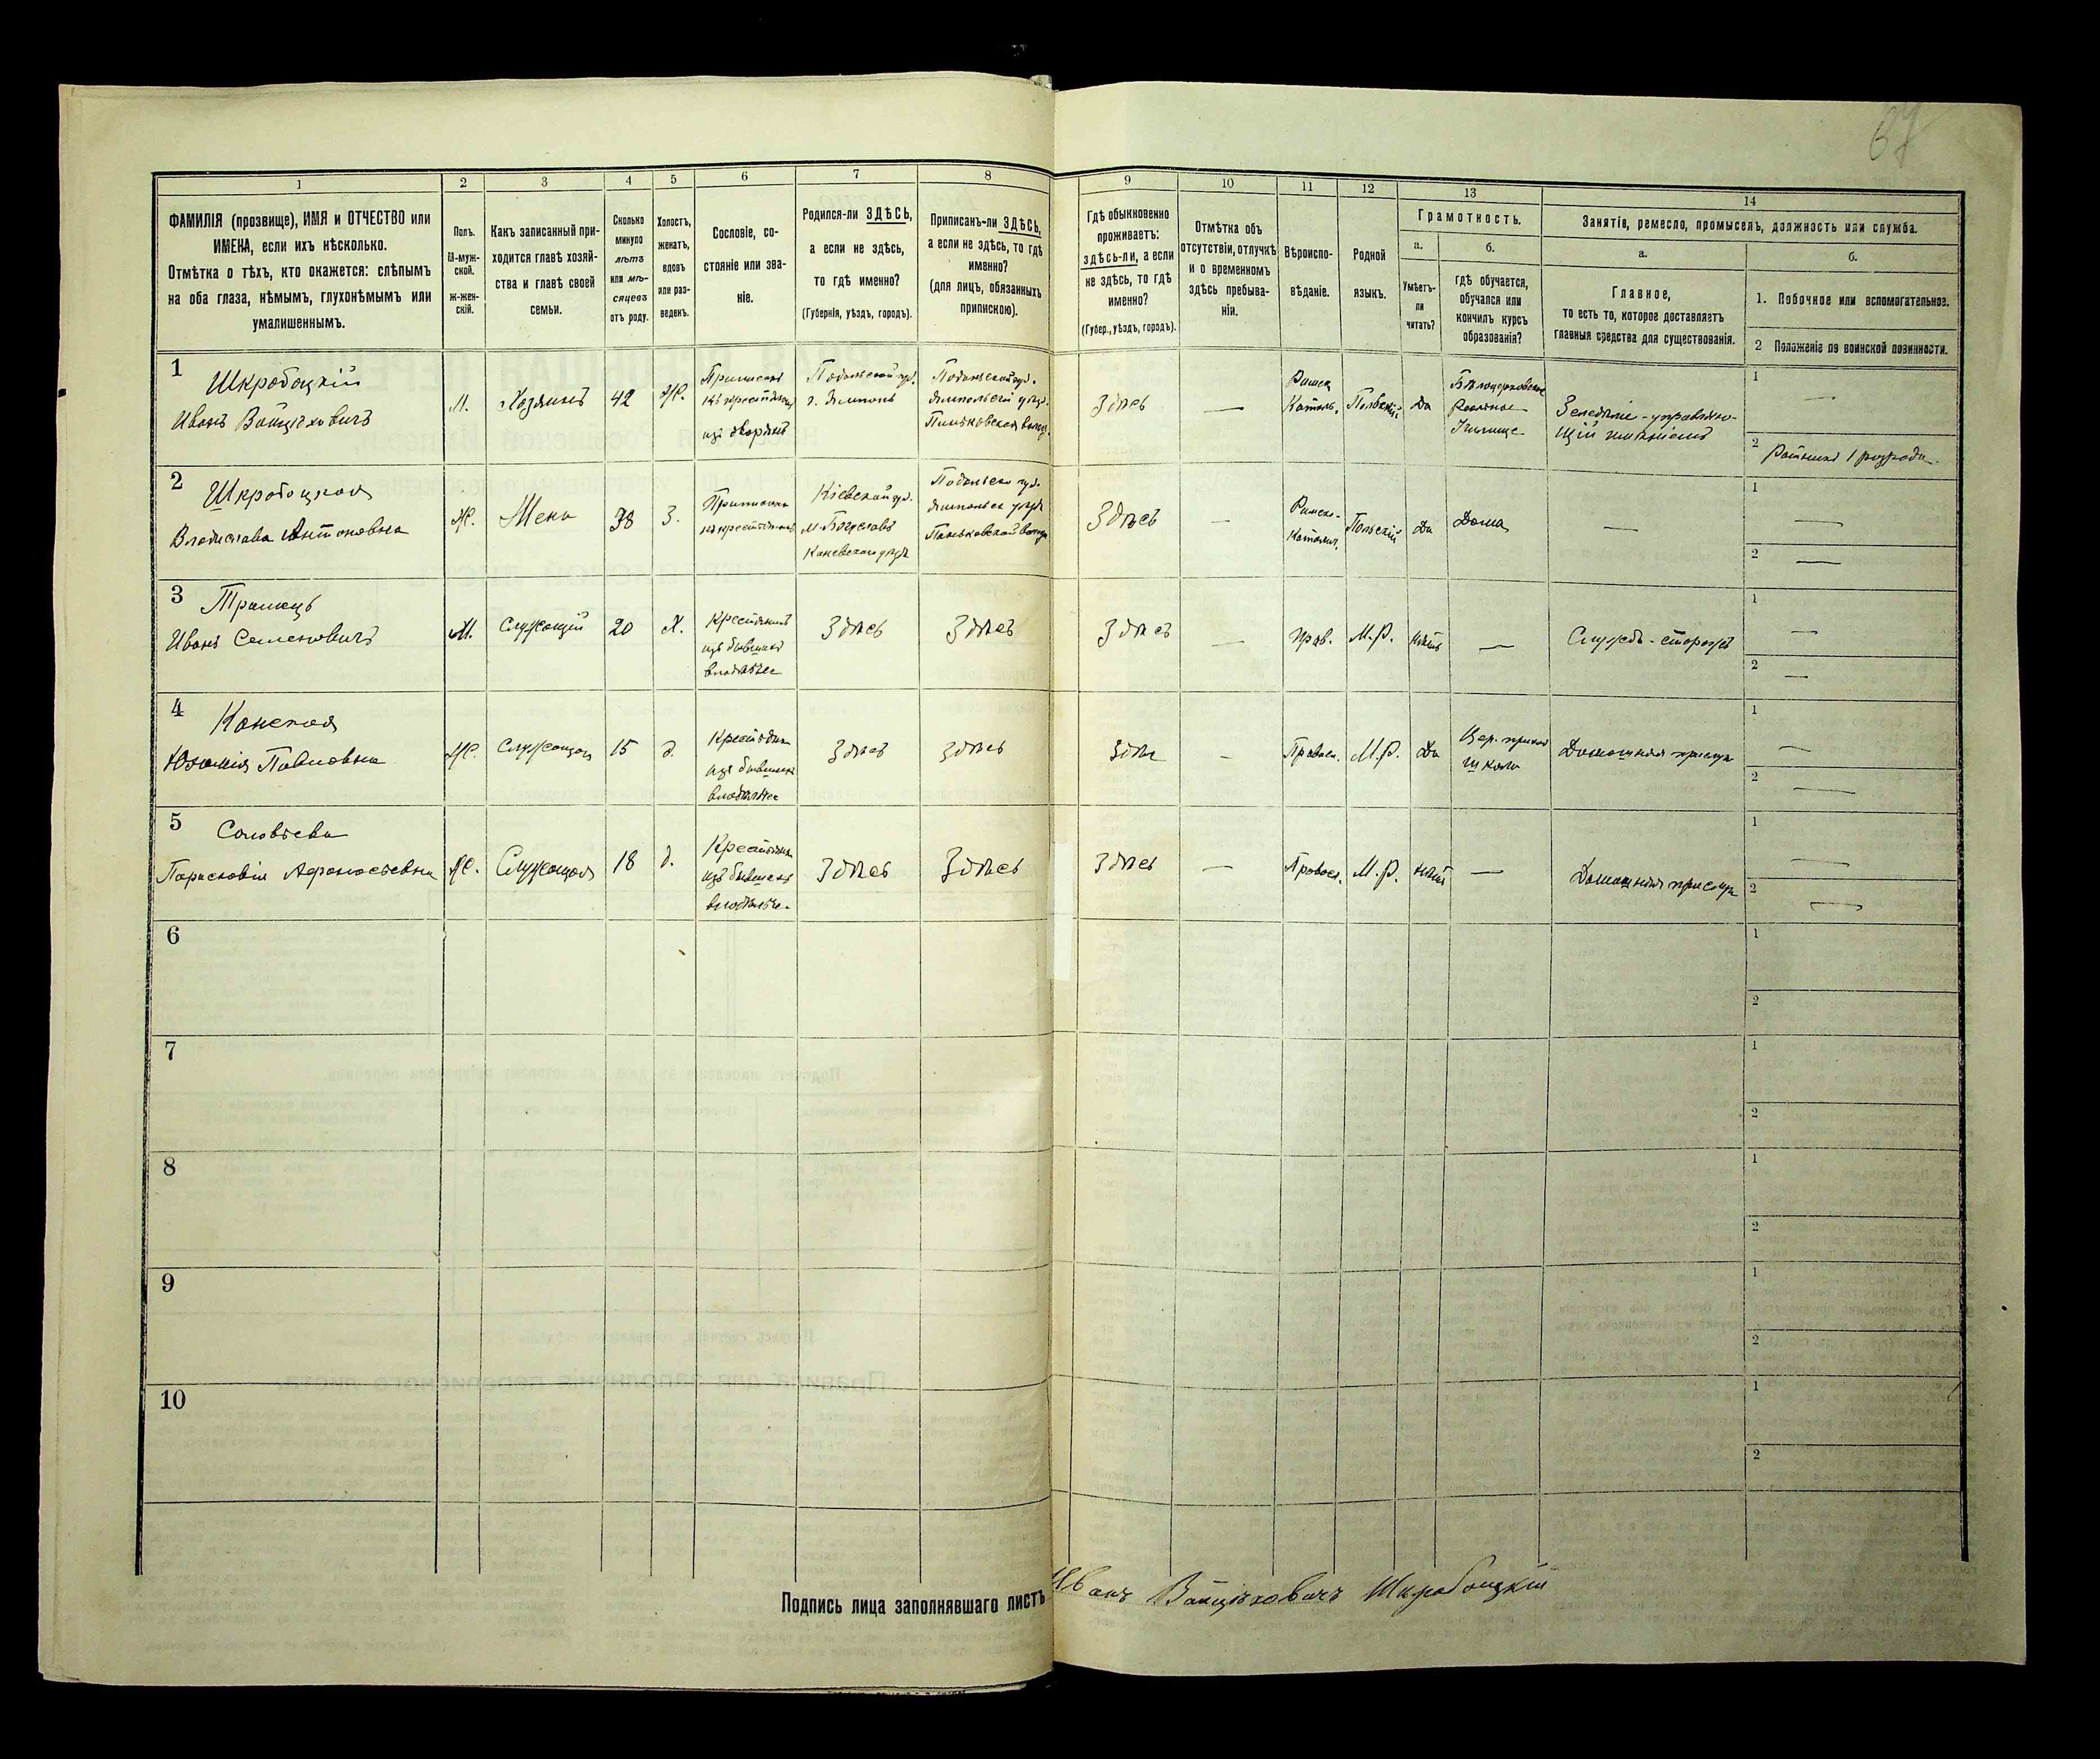 67
1
2
3
4
5
6
7
8
9
10
11
12
13
14
ФАМИЛІЯ (прозвище), ИМЯ и ОТЧЕСТВО или
ИМЕНА, если ихъ нѣсколько.
Отмѣтка о тѣхъ, кто окажется: слѣпымъ
на оба глаза, нѣмымъ, глухонѣмымъ или
умалишеннымъ.
Полъ.
М-муж-
ской.
ж-жен-
скій.
Какъ записанный при-
ходится главѣ хозяй-
ства и главѣ своей
семьи.
Сколько
минуло
лѣтъ
или мѣ-
сяцевъ
отъ роду.
Холостъ,
женатъ,
вдовъ
или раз-
веденъ.
Сословіе, со-
стояніе или зва-
ніе.
Родился-ли ЗДѢСЬ,
а если не здѣсь,
то гдѣ именно?
(Губернія, уѣздъ, городъ).
Приписанъ-ли ЗДѢСЬ,
а если не здѣсь, то гдѣ
именно?
(для лицъ, обязанныхъ
припискою).
Гдѣ обыкновенно
проживаетъ:
здѣсь-ли, а если
не здѣсь, то гдѣ
именно?
(Губер., уѣздъ, городъ).
Отмѣтка объ
отсутствіи, отлучкѣ
и о временномъ
здѣсь пребыва-
ніи.
Вѣроиспо-
вѣданіе.
Родной
языкъ.
Грамотность.
а.
Умѣетъ-
ли
читать?
б.
гдѣ обучается,
обучался или
кончилъ курсъ
образованія?
Занятія, ремесло, промыселъ, должность или служба.
а.
Главное,
то есть то, которое доставляетъ
главныя средства для существованія.
б.
1. Побочное или вспомогательное.
2 Положеніе по воинской повинности.
1
Шкробоцкій
Иванъ Войцѣховичъ
М.
Хозяинъ
42
Ж.
Приписанъ
къ крестьян.
изъ дворянъ
Подольской губ.
г. Ямполь
Подольской губ.
Ямпольскій уѣзд.
Здѣсь
—
Римск
Католь.
Польскій
Да
Бѣлоцерковское
Реальное
Училище
Земледѣліе - управляю-
щій имѣніемъ
1 —
2 Ратникъ 1 разряда
2
Шкробоцкая
Владислава Антоновна
Ж.
Жена
38
З.
Приписана
къ крестьянамъ
Кіевской губ.
м. Богуславъ
Каневскаго уѣзда
Подольск. губ.
Ямпольск уѣзда
Здѣсь
—
Римско-
Католич.
Польскій
Да
Дома
—
1 —
2 —
3
Иванъ Семеновичъ
М.
Служащій
20
Х.
Крестьянинъ
изъ бывшихъ
владѣльчес
Здѣсь
Здѣсь
Здѣсь
—
Прав.
М.Р.
Нѣтъ
—
Служба - сторожъ
1 —
2 —
4
Конская
Павловна
Ж.
Служащая
15
д.
Крестьянка
изъ бывшихъ
владѣльчес
Здѣсь
Здѣсь
Здѣсь
-
Правосл.
М.Р.
Да
Цер. приход
школа
Домашняя прислуга
1 —
2 —
5
Соловьева
Парасковія Афанасьевна
Ж.
Служащая
18
д.
Крестьянка
изъ бывшихъ
владѣльче.
Здѣсь
Здѣсь
Здѣсь
—
Правосл.
М.Р.
Нѣтъ
—
Домашняя прислуга
1 —
2 —
6
1
2
7
1
2
8
1
2
9
1
2
10
1
2
Подпись лица заполнявшаго листъ Иванъ Войцѣховичъ Шкробоцкій